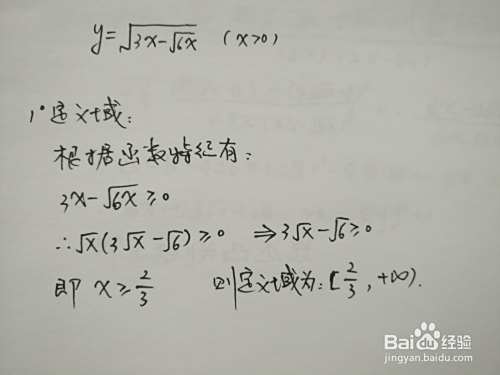 y=√(3x-√(6x)) (x>0)
1°定义域:
根据函数特征有:
3x-√(6x)≥0
∴√x(3√x-√6)≥0 ⇒3√x-√6≥0
即 x≥2/3 则定义域为:[2/3,+∞).
Baidu经验
jingyan.baidu.com